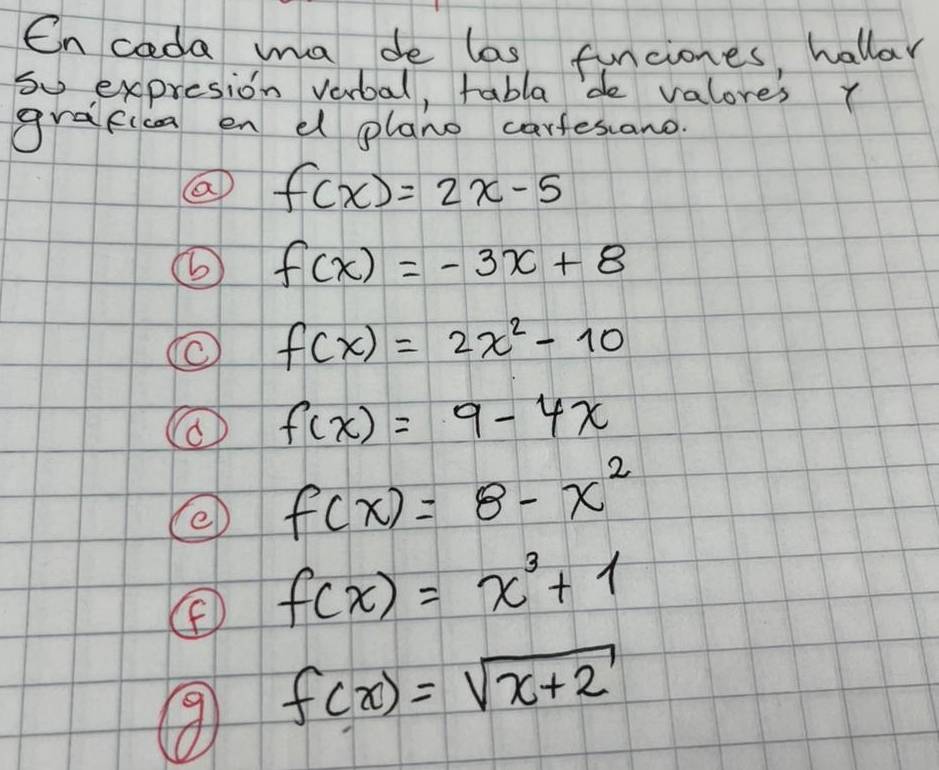 En cada una de las funciones, hallar
su expresión verbal, tabla de valores y
gráfica en el plano cartesiano.
ⓐ f(x) = 2x - 5
ⓑ f(x) = - 3x + 8
ⓒ f(x) = 2x² - 10
ⓓ f(x) = 9 - 4x
ⓔ f(x) = 8 - x²
ⓕ f(x) = x³ + 1
ⓖ f(x) = √(x+2)